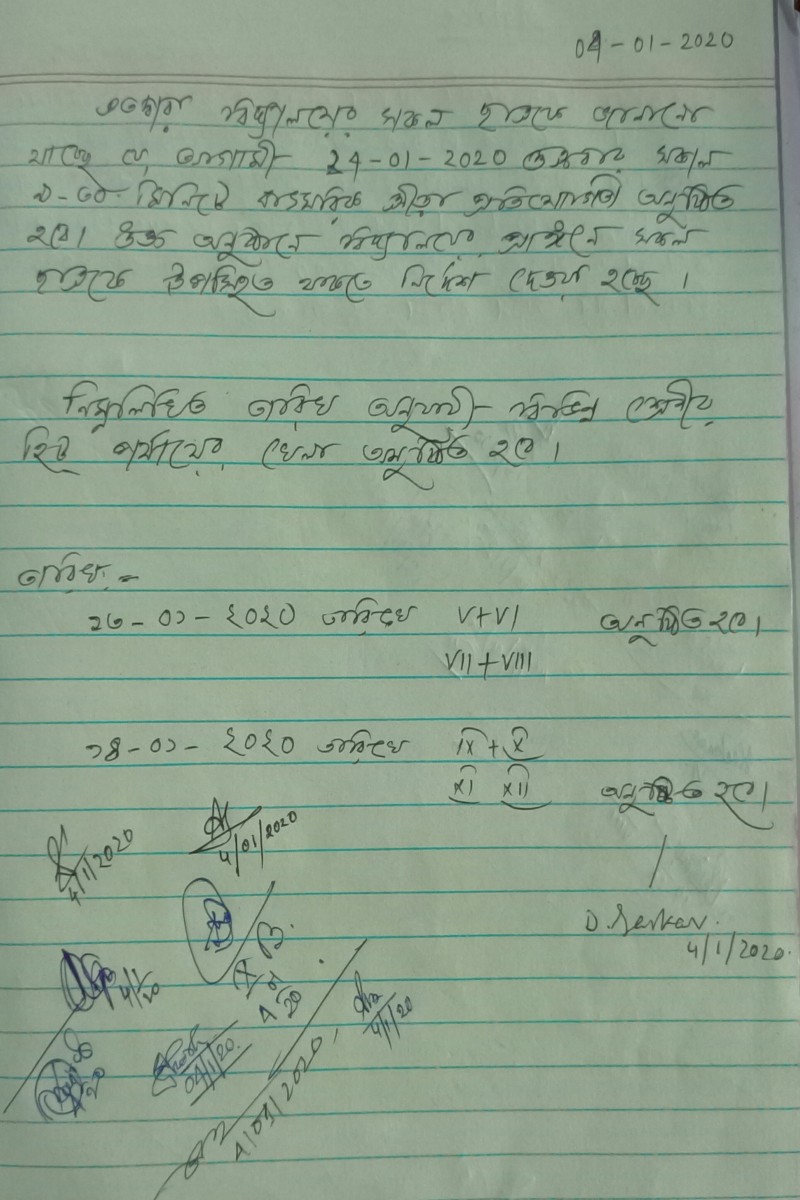 04-01-2020
এতদ্বারা বিদ্যালয়ের সকল ছাত্রকে জানানো
যাচ্ছে যে আগামী 24-01-2020 শুক্রবার সকাল
মিনিটে বাৎসরিক ক্রীড়া প্রতিযোগিতা অনুষ্ঠিত
হবে। উক্ত অনুষ্ঠানে বিদ্যালয়ের প্রাঙ্গনে সকল
ছাত্রকে উপস্থিত থাকতে নির্দেশ দেওয়া হচ্ছে।
নিম্নলিখিত তারিখ অনুযায়ী বিভিন্ন শ্রেণীর
হিট পর্যায়ের খেলা অনুষ্ঠিত হবে।
তারিখ :-
১৩-০১-২০২০ তারিখে V+VI অনুষ্ঠিত হবে।
VII+VIII
১৪-০১-২০২০ তারিখে IX+X
XI XII অনুষ্ঠিত হবে।
4/1/2020
4/01/2020
D. Sarkar.
4/1/2020.
4/1/20
4/1/20
04/1/20.
4/01/2020